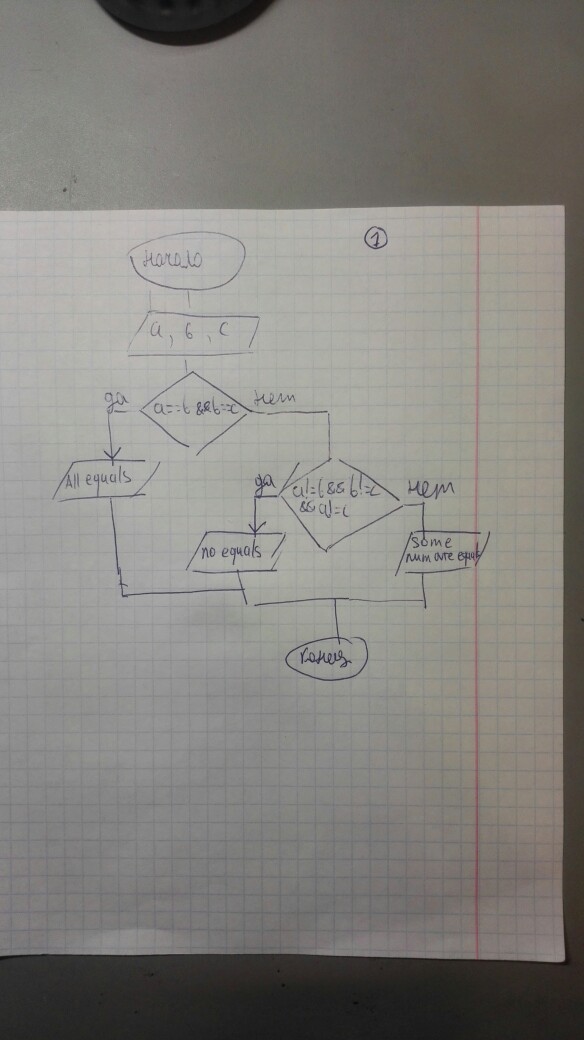 1
начало
a, b, c
да
a==b && b==c
нет
All equals
да
a!=b && b!=c
&& a!=c
нет
no equals
some
num are equals
конец